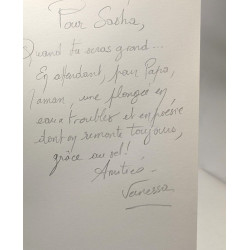 Pour Sacha,
Quand tu seras grand...
En attendant, pour Papa,
maman, une plongée en
eaux troubles et en poésie
dont on remonte toujours,
grâce au sel!
Amitiés
Vanessa